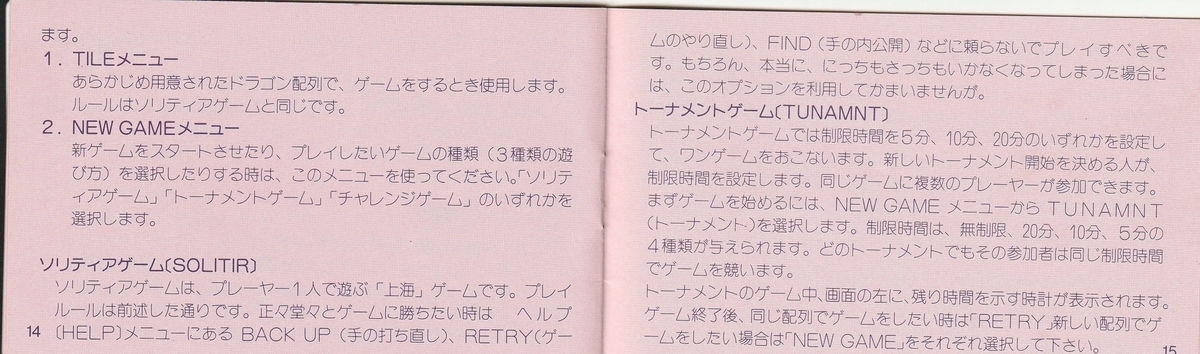 ます。
1. TILEメニュー
あらかじめ用意されたドラゴン配列で、ゲームをするとき使用します。
ルールはソリティアゲームと同じです。
2. NEW GAMEメニュー
新ゲームをスタートさせたり、プレイしたいゲームの種類（3種類の遊
び方）を選択したりする時は、このメニューを使ってください。「ソリテ
ィアゲーム」「トーナメントゲーム」「チャレンジゲーム」のいずれかを
選択します。
ソリティアゲーム〔SOLITIR〕
ソリティアゲームは、プレーヤー1人で遊ぶ「上海」ゲームです。プレイ
ルールは前述した通りです。正々堂々とゲームに勝ちたい時は ヘルプ
〔HELP〕メニューにある BACK UP（手の打ち直し）、RETRY（ゲー
14
ムのやり直し）、FIND（手の内公開）などに頼らないでプレイすべきで
す。もちろん、本当に、にっちもさっちもいかなくなってしまった場合に
は、このオプションを利用してかまいませんが。
トーナメントゲーム〔TUNAMNT〕
トーナメントゲームでは制限時間を5分、10分、20分のいずれかを設定し
て、ワンゲームをおこないます。新しいトーナメント開始を決める人が、
制限時間を設定します。同じゲームに複数のプレーヤーが参加できます。
まずゲームを始めるには、NEW GAME メニューから TUNAMNT
（トーナメント）を選択します。制限時間は、無制限、20分、10分、5分の
4種類が与えられます。どのトーナメントでもその参加者は同じ制限時間
でゲームを競います。
トーナメントのゲーム中、画面の左に、残り時間を示す時計が表示されます。
ゲーム終了後、同じ配列でゲームをしたい時は「RETRY」新しい配列でゲ
ームをしたい場合は「NEW GAME」をそれぞれ選択して下さい。
15